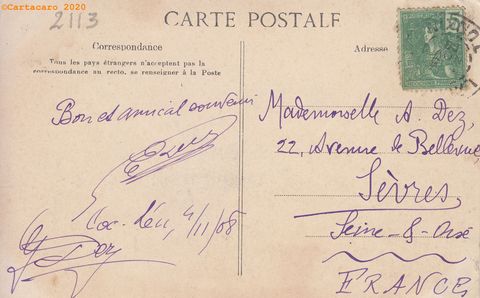 ©Cartacaro 2020
2113
CARTE POSTALE
Correspondance
Tous les pays étrangers n'acceptent pas la
correspondance au recto, se renseigner à la Poste
Adresse
Bon et amical souvenir
4/11/08
Mademoiselle A. Dez,
22, Avenue de Bellevue
Sèvres,
Seine-&-Oise
FRANCE